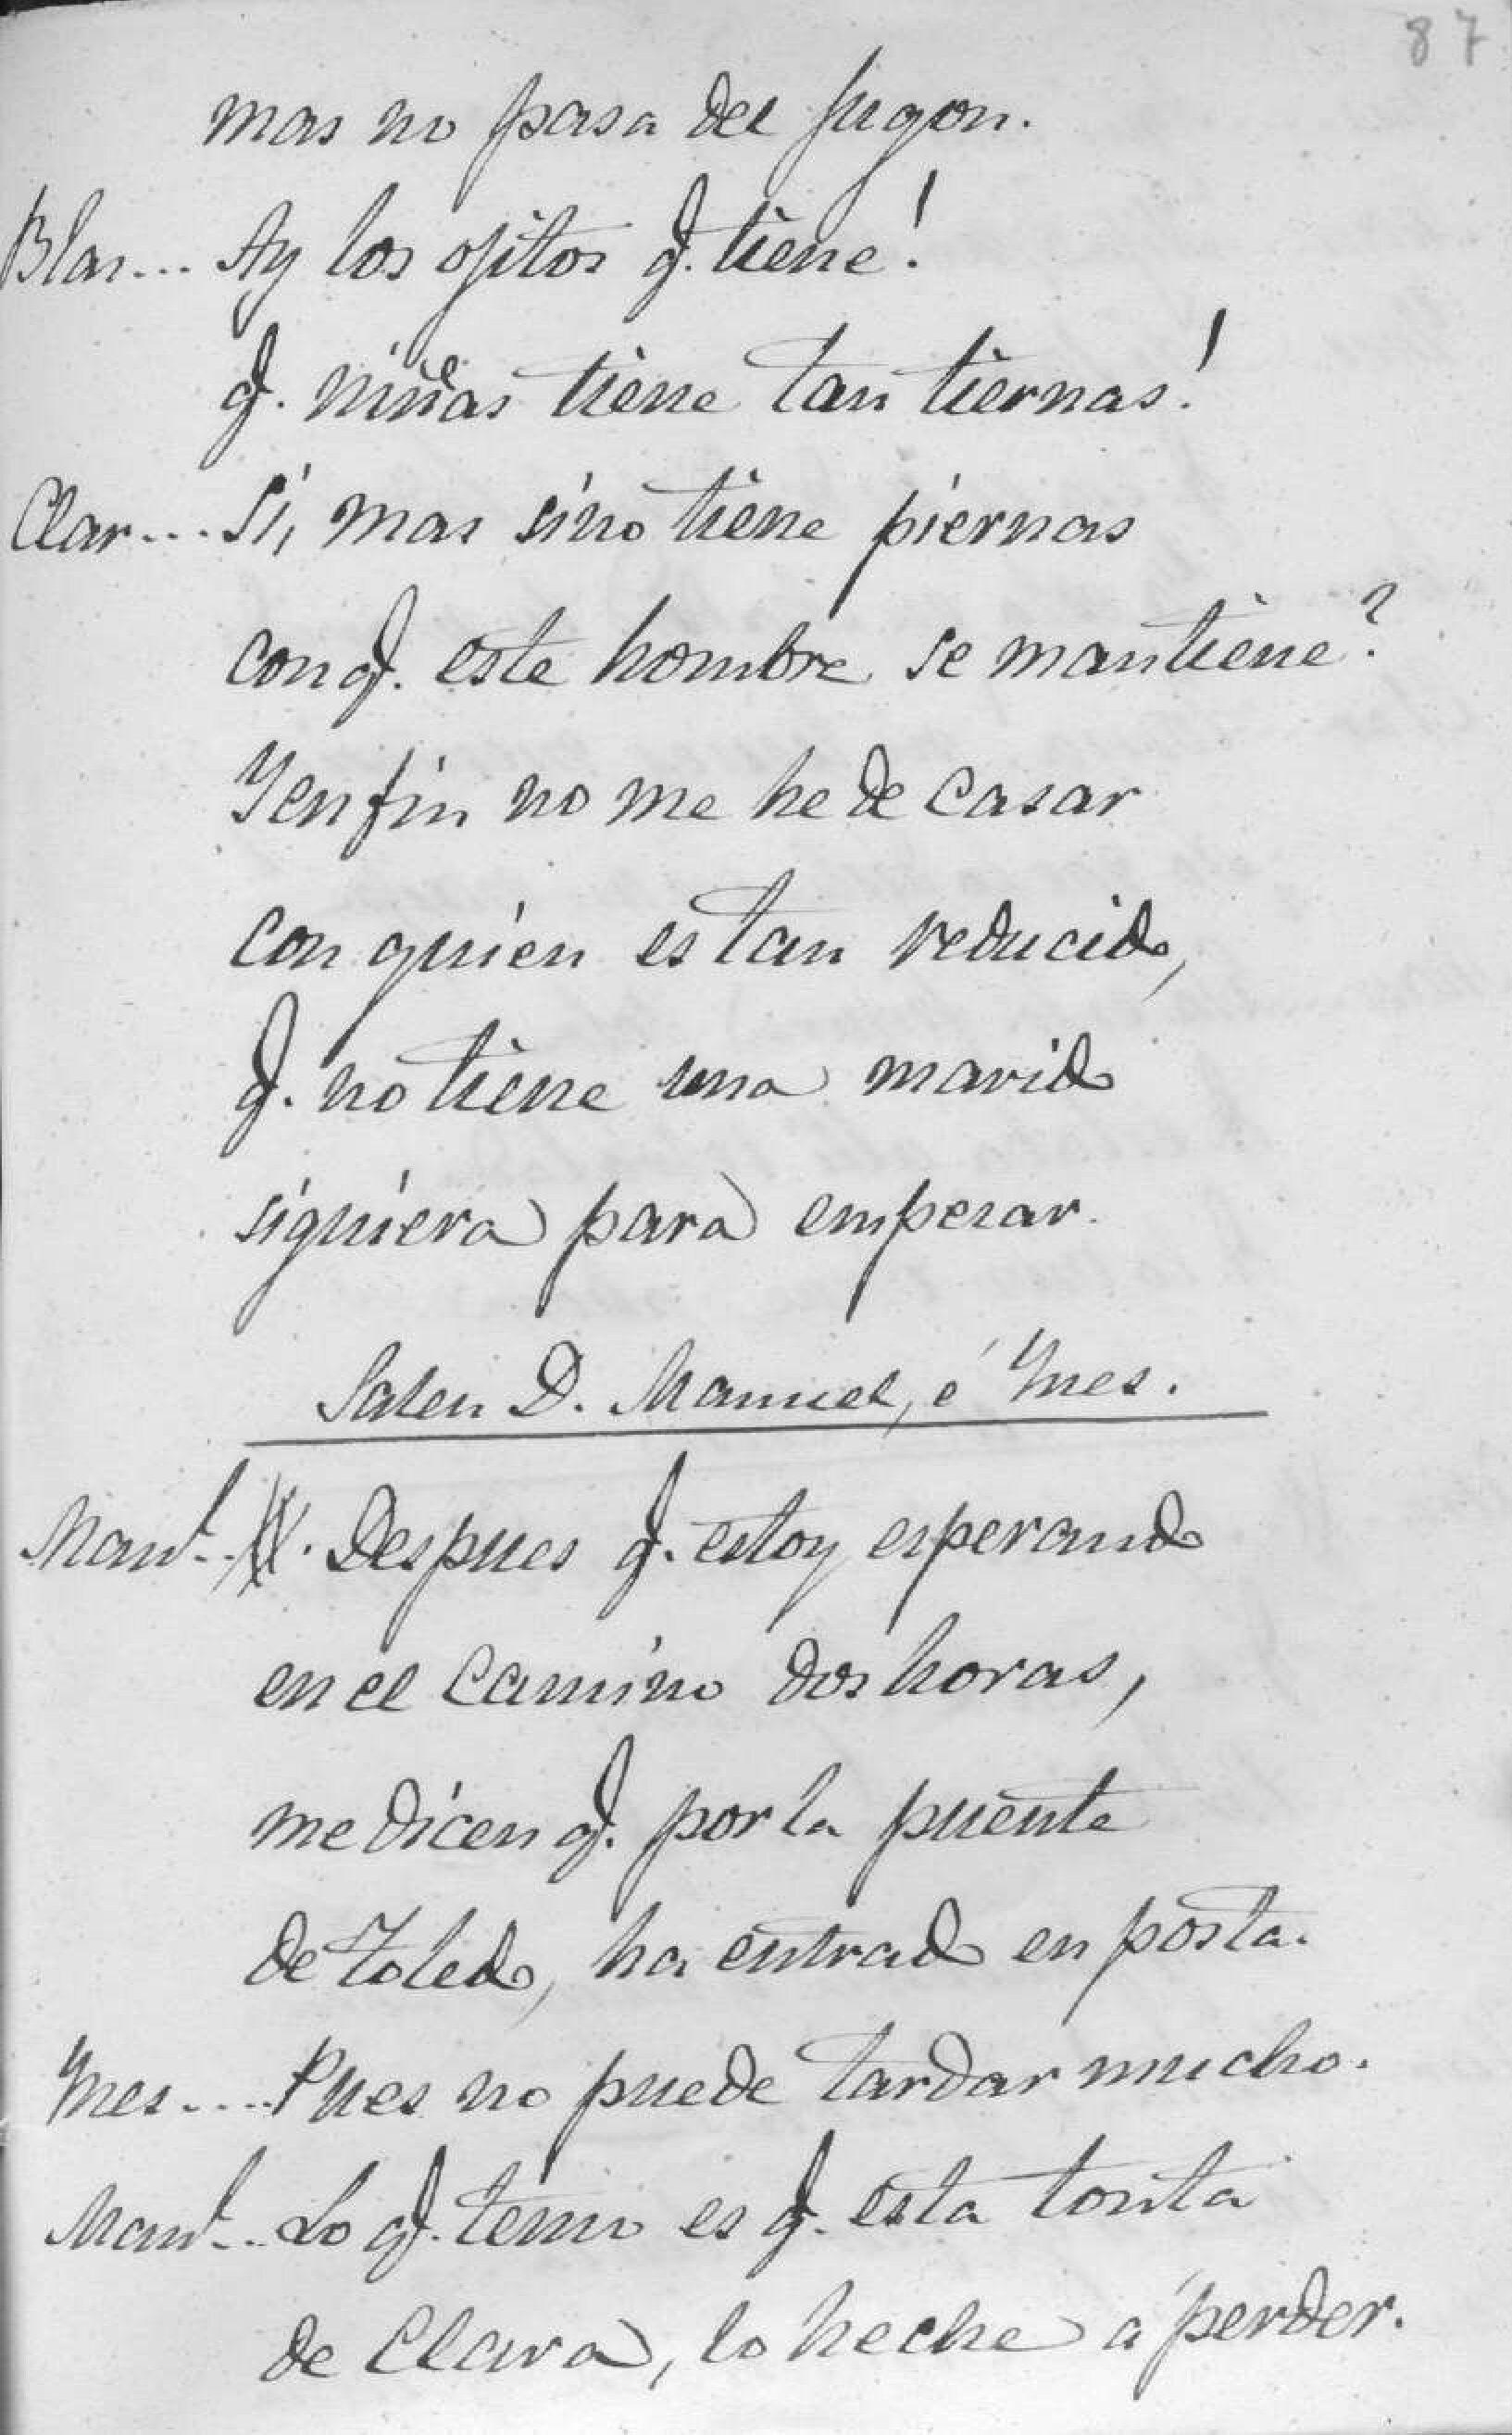 87
mas no pasa del jugon.
Blas... Ay los ojitos q. tiene!
q. niñas tiene tan tiernas!
Clar... Si, mas sino tiene piernas
con q. este hombre se mantiene?
Yenfin no me he de casar
con quien es tan reducido,
q. no tiene una marido
siquiera para empezar.
Salen D. Manuel, é Ynes.
Manl... Despues q. estoy esperando
en el camino dos horas,
me dicen q. por la puente
de Toledo, ha entrado en posta.
Ynes.... Pues no puede tardar mucho.
Manl... Lo q. temo es q. esta tonta
de Clara, lo heche a perder.